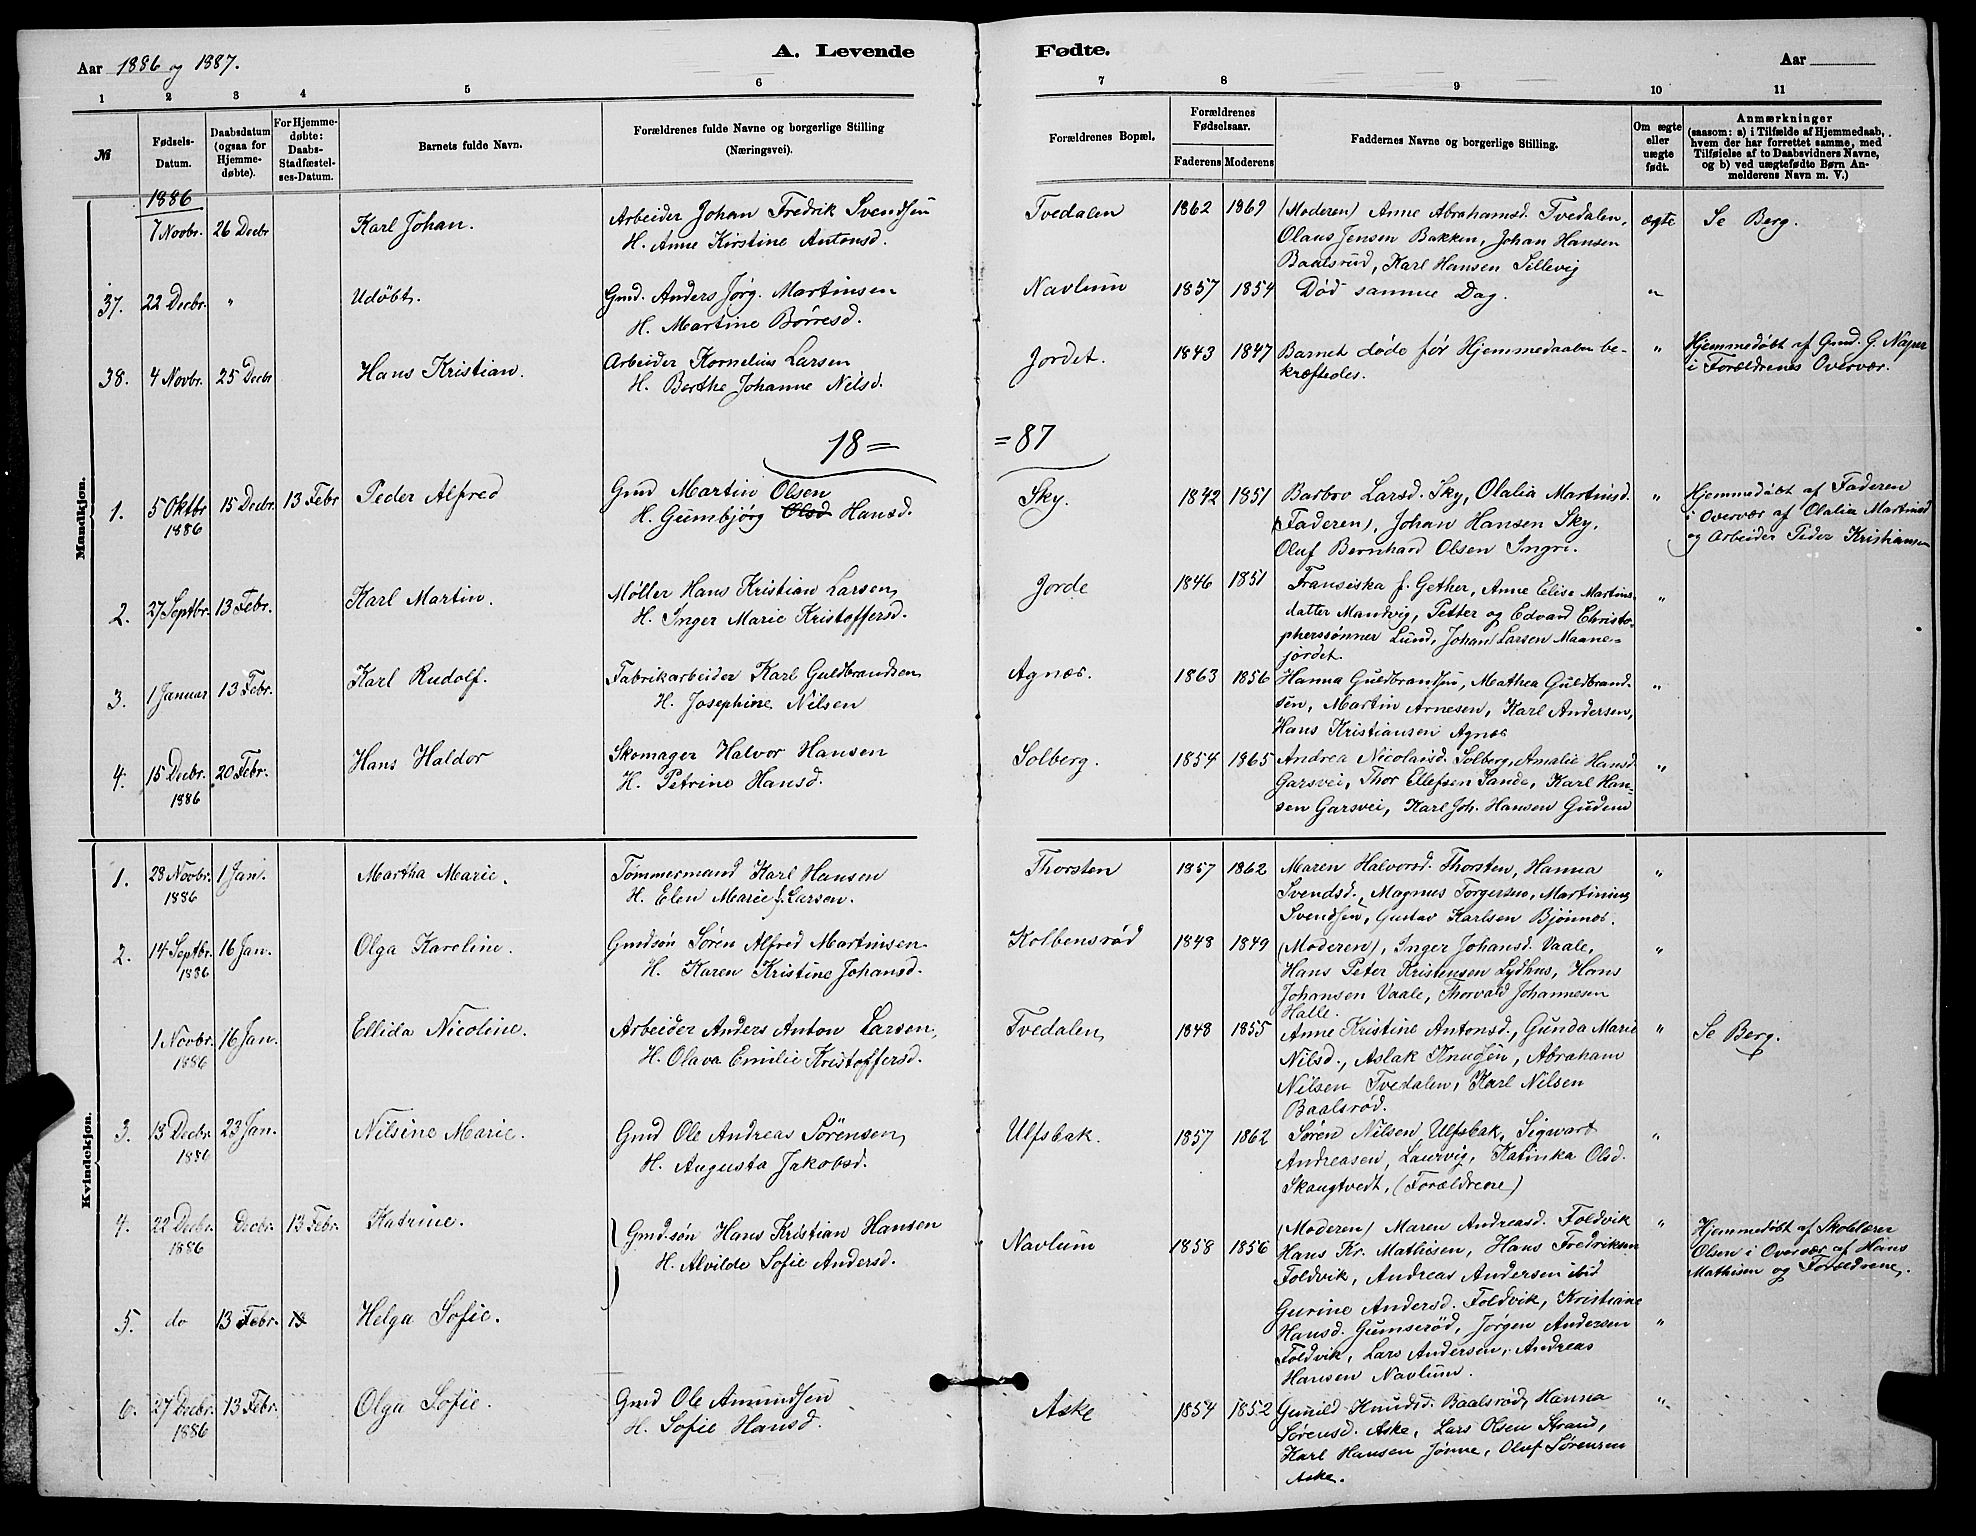 Aar 1886 og 1887.
A. Levende
Fødte.
Aar
1 2 3 4 5 6 7 8 9 10 11
№
Fødsels-
Datum.
Daabsdatum
(ogsaa for
Hjemme-
døbte).
For Hjemme-
døbte:
Daabs-
Stadfæstel-
ses-Datum.
Barnets fulde Navn.
Forældrenes fulde Navne og borgerlige Stilling
(Næringsvei).
Forældrenes Bopæl.
Forældrenes
Fødselsaar.
Faderens Moderens
Faddernes Navne og borgerlige Stilling.
Om ægte
eller
uægte
født.
Anmærkninger
(saasom: a) i Tilfælde af Hjemmedaab,
hvem der har forrettet samme, med
Tilføielse af to Daabsvidners Navne,
og b) ved uægtefødte Børn An-
melderens Navn m. V.)
Mandkjøn.
1886
7 Novbr. 26 Decbr
Karl Johan.
Arbeider Johan Fredrik Svendsen
H. Anne Kirstine Antonsd.
Tvedalen
1862 1869
(Moderen) Anne Abrahamsd. Tvedalen,
Olaus Jensen Bakken, Johan Hansen
Baalsrud, Karl Hansen Sillevig
ægte
Se Berg.
37. 22 Decbr. "
Udøbt.
Gmd. Anders Jørg. Martinsen
H. Martine Børresd.
Navlum
1857 1854
Død samme Dag.
"
38. 4 Novbr. 25 Decbr
Hans Kristian.
Arbeider Kornelius Larsen
H. Berthe Johanne Nilsd.
Jordet.
1843 1847
Barnet døde før Hjemmedaaben be-
kræftedes.
"
Hjemmedøbt af Gmd. G. Nayer
i Forældrenes Overvær.
18= =87
1. 5 Oktbr 15 Decbr. 13 Febr
1886
Peder Alfred
Gmd Martin Olsen
H. Gumbjørg Olsd Hansd.
Sky.
1842 1851
Barbro Larsd. Sky, Olalia Martinsd.
(Faderen), Johan Hansen Sky,
Oluf Bernhard Olsen Ingri.
"
Hjemmedøbt af Faderen
i Overvær af Olalia Martinsd
og Arbeider Peder Kristiansen
2. 27 Septbr. 13 Febr.
Karl Martin.
Møller Hans Kristian Larsen,
H. Inger Marie Kristoffersd.
Jorde
1846 1851
Fransiska f. Gether, Anne Elise Martins-
datter Mandvig, Petter og Edvard Christo-
pherssønner Lund, Johan Larsen Maane-
jordet.
"
3. 1 Januar 13 Febr.
Karl Rudolf.
Fabrikarbeider Karl Guldbrandsen
H. Josephine Nilsen
Agnæs.
1863 1856
Hanna Guldbrandsen, Mathea Guldbrand-
sen, Martin Arnesen, Karl Andersen,
Hans Kristiansen Agnæs
"
4. 15 Decbr. 20 Febr.
1886
Hans Haldor
Skomager Halvor Hansen
H. Petrine Hansd.
Solberg.
1854 1865
Andrea Nicolaisd. Solberg, Amalie Hansd.
Garsvei, Thor Ellefsen Sande, Karl Han-
sen Garsvei, Karl Joh. Hansen Gudem
"
Kvindekjøn.
1. 28 Novbr. 1 Jan.
1886
Martha Marie.
Tømmermand Karl Hansen
H. Elen Marie f. Larsen.
Thorsten
1857 1862
Maren Halvorsd. Thorsten, Hanna
Svendsd., Magnus Torgersen, Martinius
Svendsen, Gustav Karlsen Bjønnæs.
"
2. 14 Septbr. 16 Jan.
1886
Olga Karoline.
Gmdsøn Søren Alfred Martinsen
H. Karen Kristine Johansd.
Kolbensrød
1848 1849
(Moderen), Inger Johansd. Vaale,
Hans Peter Kristensen Lydhus, Hans
Johansen Vaale, Thorvald Johannesen
Halle.
"
1 Novbr. 16 Jan.
1886
Ellida Nicoline.
Arbeider Anders Anton Larsen,
H. Olava Emilie Kristoffersd.
Tvedalen,
1848 1855
Anne Kristine Antonsd., Gunda Marie
Nilsd., Aslak Knudsen, Abraham
Nilsen Tvedalen, Karl Nilsen
Baalsrød.
"
Se Berg.
3. 13 Decbr. 23 Jan.
1886
Nilsine Marie.
Gmd Ole Andreas Sørensen,
H. Augusta Jakobsd.
Ulfsbak.
1857 1862
Søren Nilsen Ulfsbak, Sigvart
Andreasen, Laurvig, Katinka Olsd.
Skaugtvedt, (Forældrene)
"
4. 22 Decbr. Decbr. 13 Febr.
1886
Katrine.
Gmdsøn Hans Kristian Hansen
H. Alvilde Sofie Andersd.
Navlum
1858 1856
(Moderen) Maren Andreasd. Foldvik
Hans Kr. Mathisen, Hans Fredriksen
Foldvik, Andreas Andersen ibid
"
Hjemmedøbt af Skolelærer
Olsen i Overvær af Hans
Mathisen og Forældrene,
5. do 13 Febr. 13
Helga Sofie.
Gurine Andersd. Foldvik, Kristiane
Hansd. Gumserød, Jørgen Andersen
Foldvik, Lars Andersen, Andreas
Hansen Navlum.
"
6. 27 Decbr. 13 Febr.
1886
Olga Sofie.
Gmd Ole Amundsen
H. Sofie Hansd.
Aske
1854 1852
Gunild Knudsd. Baalsrød, Hanna
Sørensd. Aske, Lars Olsen Strand,
Karl Hansen Jønne, Oluf Sørensen
Aske.
"